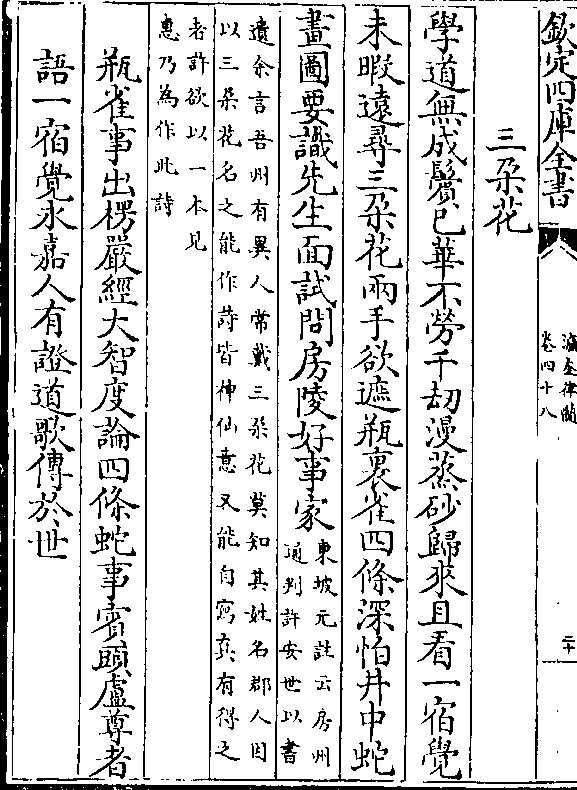 欽定四庫全書
瀛奎律髓
卷四十八
二十
三朶花
學道無成鬢已華不勞千刧漫蒸砂歸來且看一宿覺
未暇遠尋三朶花兩手欲遮瓶裏雀四條深怕井中蛇
畫圖要識先生面試問房陵好事家
東坡元註云房州
通判許安世以書
遺余言吾州有異人常戴三朶花莫知其姓名郡人因
以三朶花名之能作詩皆神仙意又能自寫真有得之
者許欲以一本見
惠乃為作此詩
瓶雀事出楞嚴經大智度論四條蛇事賓頭盧尊者
語一宿覺永嘉人有證道歌傳於世